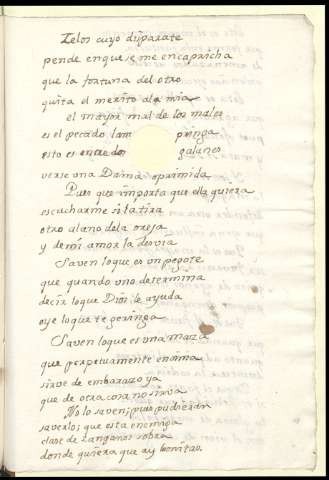 Zelos cuyo disparate
pende en que se me encapricha
que la fortuna del otro
quita el merito ala mia
el mayor mal de los males
es el pecado lam pringa
esto es entre dos galanes
verse una Dama oprimida
Pues que importa que ella quiera
escucharme si la tira
otro alano dela oreja
y de mi amor la desvia
Saven loque es un pegote
que quando uno determina
decir loque Dios le ayuda
oye loque te geringa
Saven loque es una maza
que perpetuamente encima
sirve de embarazo ya
que de otra cosa no sirva
No lo saven; pues pudieran
saverlo; que esta enemiga
clase de zanganos sobra
donde quiera que ay bonitas.